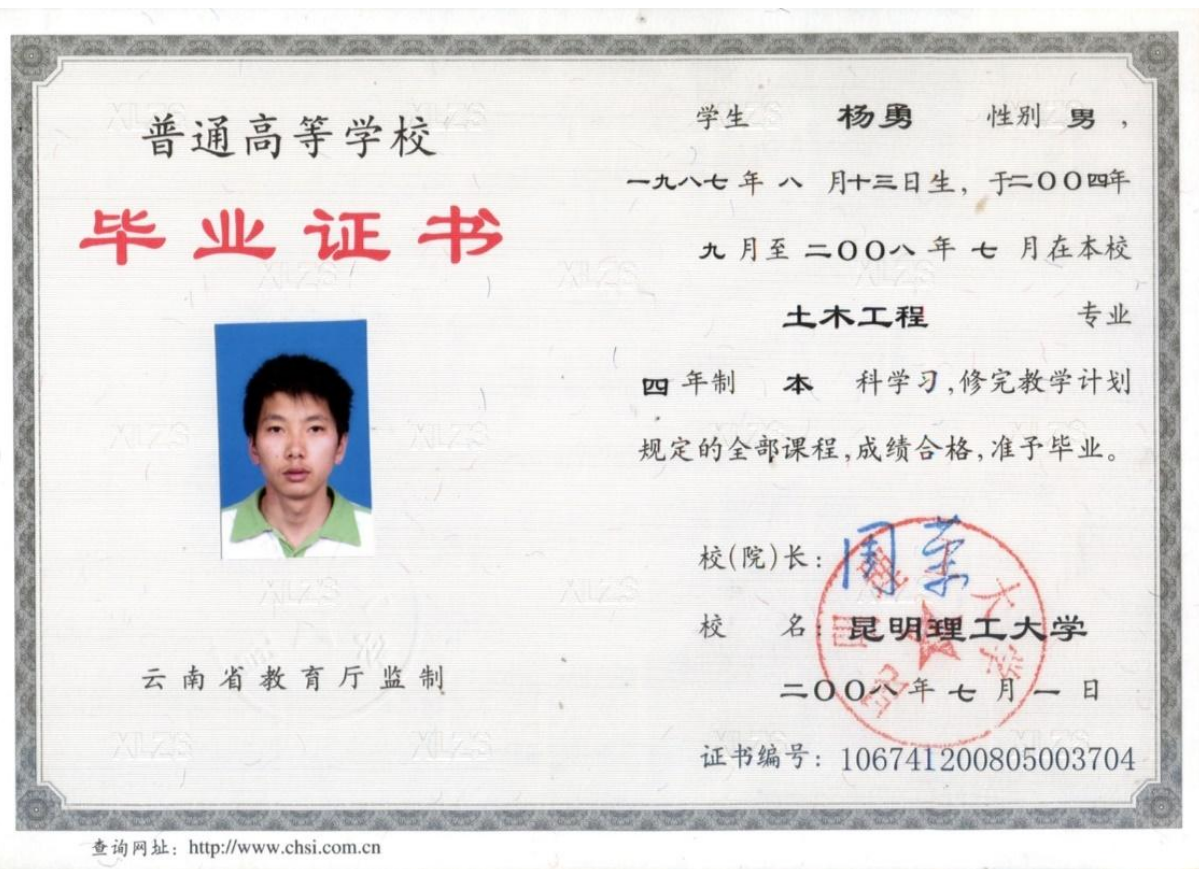 普通高等学校
毕业证书
云南省教育厅监制
学生 杨勇 性别 男，
一九八七年 八 月十三日生，于二〇〇四年
九 月至 二〇〇八 年 七 月在本校
土木工程 专业
四 年制 本 科学习，修完教学计划
规定的全部课程，成绩合格，准予毕业。
校(院)长：周荣
校 名：昆明理工大学
二〇〇八年 七 月 一 日
证书编号：106741200805003704
查询网址：http://www.chsi.com.cn
昆明理工大学
XLZS